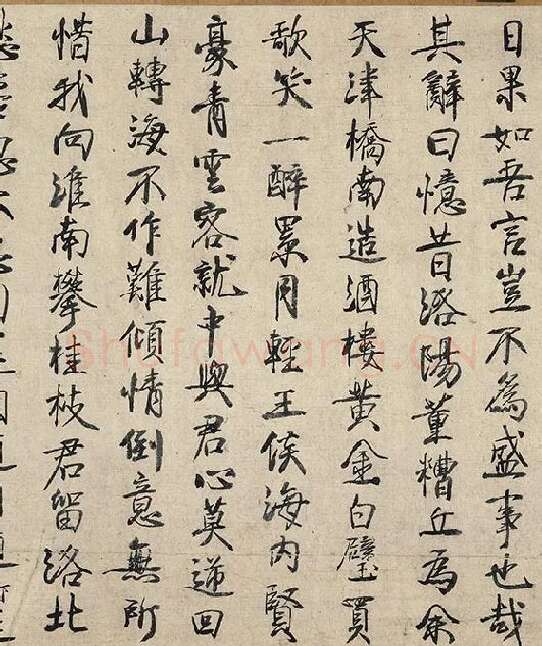 日果如吾言豈不為盛事也哉
其辭曰憶昔洛陽董糟丘為余
天津橋南造酒樓黃金白璧買
歌笑一醉累月輕王侯海內賢
豪青雲客就中與君心莫逆回
山轉海不作難傾情倒意無所
惜我向淮南攀桂枝君留洛北
Shufawang.CN